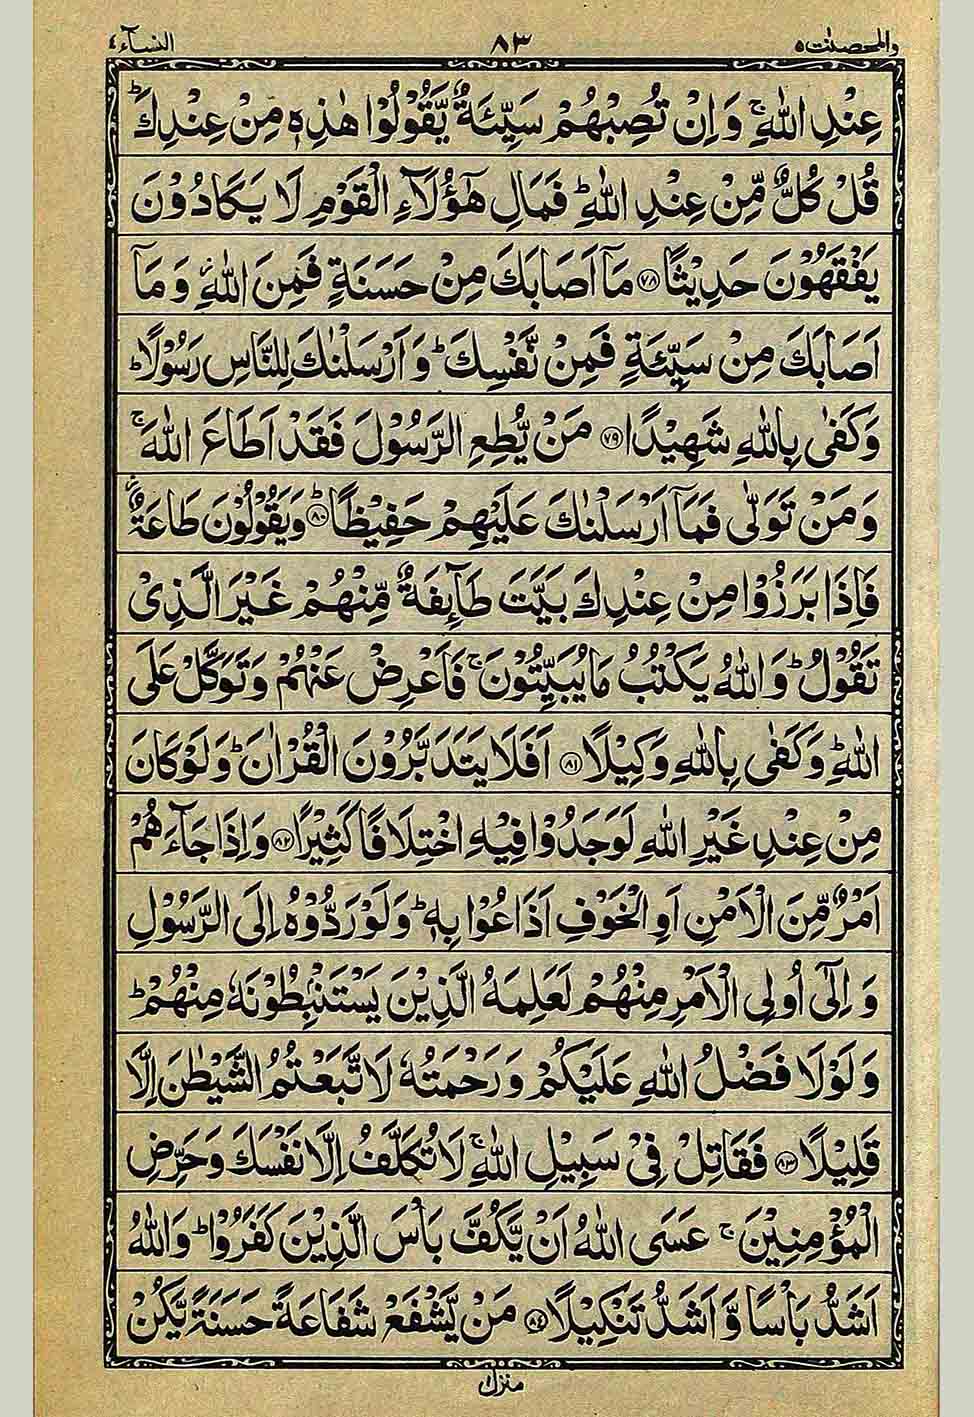 والمحصنت ٥ ٨٣ النسآء ٤
عِنْدِ اللّٰهِ ۚ وَاِنْ تُصِبْهُمْ سَيِّئَةٌ يَّقُوْلُوْا هٰذِهٖ مِنْ عِنْدِكَ ؕ
قُلْ كُلٌّ مِّنْ عِنْدِ اللّٰهِ ؕ فَمَالِ هٰٓؤُلَآءِ الْقَوْمِ لَا يَكَادُوْنَ
يَفْقَهُوْنَ حَدِيْثًا ﴿۷۸﴾ مَاۤ اَصَابَكَ مِنْ حَسَنَةٍ فَمِنَ اللّٰهِ ؗ وَمَاۤ
اَصَابَكَ مِنْ سَيِّئَةٍ فَمِنْ نَّفْسِكَ ؕ وَاَرْسَلْنٰكَ لِلنَّاسِ رَسُوْلًا ؕ
وَكَفٰى بِاللّٰهِ شَهِيْدًا ﴿۷۹﴾ مَنْ يُّطِعِ الرَّسُوْلَ فَقَدْ اَطَاعَ اللّٰهَ ۚ
وَمَنْ تَوَلّٰى فَمَاۤ اَرْسَلْنٰكَ عَلَيْهِمْ حَفِيْظًا ؕ ﴿۸۰﴾ وَيَقُوْلُوْنَ طَاعَةٌ ؗ
فَاِذَا بَرَزُوْا مِنْ عِنْدِكَ بَيَّتَ طَآئِفَةٌ مِّنْهُمْ غَيْرَ الَّذِىْ
تَقُوْلُ ؕ وَاللّٰهُ يَكْتُبُ مَا يُبَيِّتُوْنَ ۚ فَاَعْرِضْ عَنْهُمْ وَتَوَكَّلْ عَلَى
اللّٰهِ ؕ وَكَفٰى بِاللّٰهِ وَكِيْلًا ﴿۸۱﴾ اَفَلَا يَتَدَبَّرُوْنَ الْقُرْاٰنَ ؕ وَلَوْ كَانَ
مِنْ عِنْدِ غَيْرِ اللّٰهِ لَوَجَدُوْا فِيْهِ اخْتِلَافًا كَثِيْرًا ﴿۸۲﴾ وَاِذَا جَآءَهُمْ
اَمْرٌ مِّنَ الْاَمْنِ اَوِ الْخَوْفِ اَذَاعُوْا بِهٖ ؕ وَلَوْ رَدُّوْهُ اِلَى الرَّسُوْلِ
وَاِلٰٓى اُولِى الْاَمْرِ مِنْهُمْ لَعَلِمَهُ الَّذِيْنَ يَسْتَنْۢبِطُوْنَهٗ مِنْهُمْ ؕ
وَلَوْلَا فَضْلُ اللّٰهِ عَلَيْكُمْ وَرَحْمَتُهٗ لَاتَّبَعْتُمُ الشَّيْطٰنَ اِلَّا
قَلِيْلًا ﴿۸۳﴾ فَقَاتِلْ فِىْ سَبِيْلِ اللّٰهِ ۚ لَا تُكَلَّفُ اِلَّا نَفْسَكَ وَحَرِّضِ
الْمُؤْمِنِيْنَ ۚ عَسَى اللّٰهُ اَنْ يَّكُفَّ بَاْسَ الَّذِيْنَ كَفَرُوْا ؕ وَاللّٰهُ
اَشَدُّ بَاْسًا وَّاَشَدُّ تَنْكِيْلًا ﴿۸۴﴾ مَنْ يَّشْفَعْ شَفَاعَةً حَسَنَةً يَّكُنْ
منزل ١